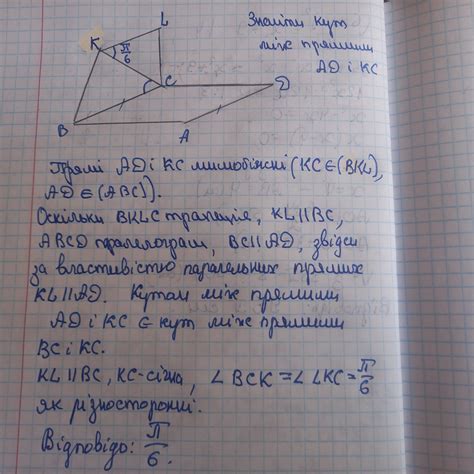 L
K
π
6
C
D
B
A
Знайти кут
між прямими
AD і KC
Прямі AD і KC мимобіжні (KC∈(BKL),
AD∈(ABC)).
Оскільки BKLC трапеція, KL||BC,
ABCD паралелограм, BC||AD, звідси
за властивістю паралельних прямих
KL||AD. Кутом між прямими
AD і KC є кут між прямими
BC і KC.
KL||BC, KC-січна, ∠BCK=∠LKC=π/6
як різносторонні.
Відповідь: π/6.